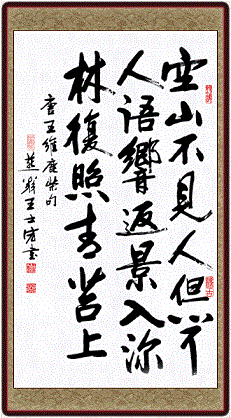 空山不見人但聞
人語響返景入深
林復照青苔上
唐王維鹿柴句
王士書